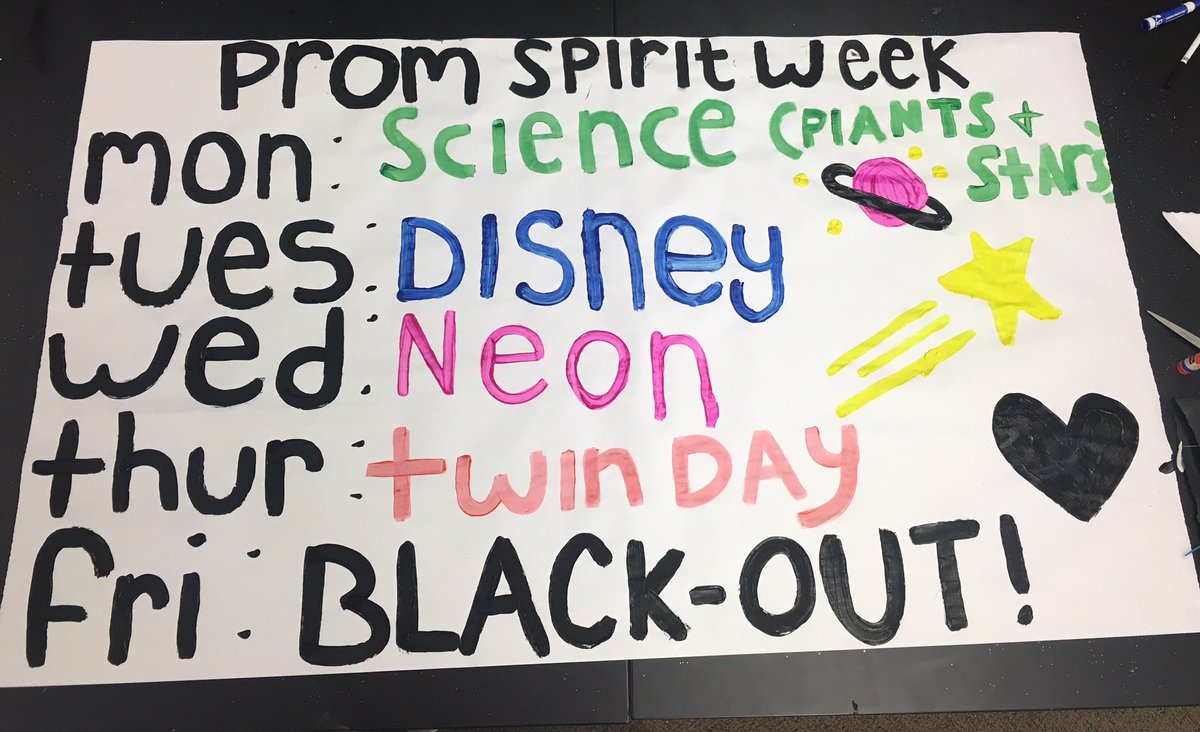 prom spirit week
mon: Science (PlANTS +
StArs)
tues: DISney
wed: Neon
thur: twin DAy
fri: BLACK-OUT!